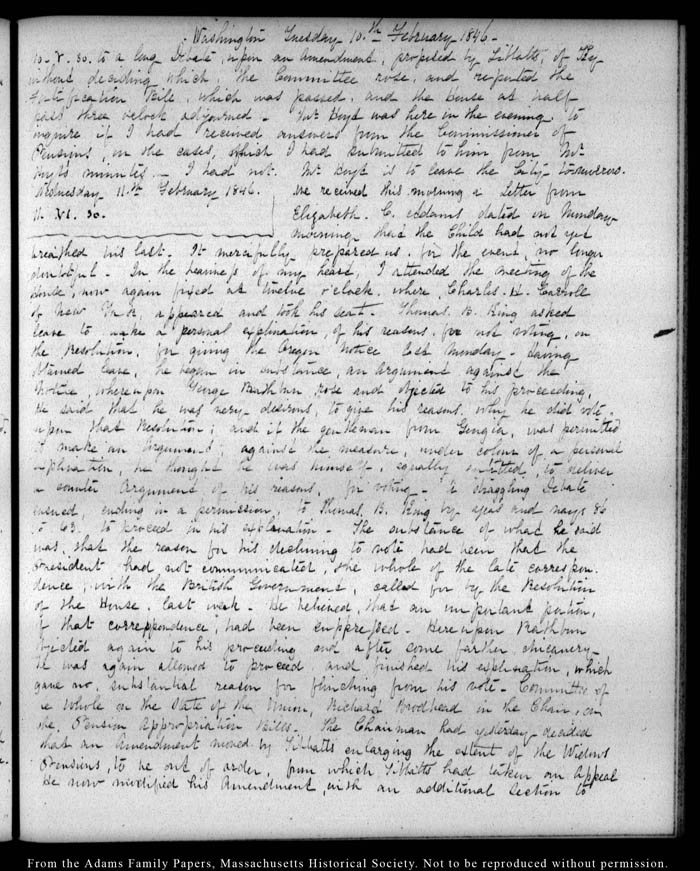 Washington Tuesday 10.th February 1846.
10. V. 30. to a long Debate, upon an Amendment, proposed by Tibbatts, of Ky
without deciding which, the Committee rose, and reported the
Fortification Bill, which was passed, and the House at half
past three oclock adjourned. Mr Boyd was here in the evening, to
inquire if I had received answers from the Commissioner of
Pensions, in the cases, which I had submitted to him from Mr
minutes — I had not. Mr Boyd is to leave the City to-morrow.
Wednesday 11.th February 1846. We received this morning a Letter from
11. VI. 30. Elizabeth. C. Adams dated on Monday
morning that the Child had not yet
breathed his last. It mercifully prepared us, for the event, no longer
doubtful. In the heaviness of my heart, I attended the meeting of the
House, now again fixed at twelve o'clock. where, Charles. H. Carroll
of New York, appeared and took his seat. Thomas. B. King asked
leave to make a personal explanation, of his reasons, for not voting, on
the Resolution, for giving the Oregon notice last Monday. Having
obtained leave, he began in substance, an argument against the
Notice, whereupon George Rathbun, rose and objected to his proceeding,
he said that he was very desirous, to give his reasons, why he did vote
upon that Resolution; and if the gentleman from Georgia, was permitted
to make an Argument, against the measure, under colour of a personal
explanation, he thought he was himself, equally entitled, to deliver
a counter Argument of his reasons, for voting. A straggling Debate
ensued, ending in a permission, to Thomas. B. King by yeas and nays 86
to 63. to proceed in his explanation. The substance of what he said
was, that the reason for his declining to vote had been that the
President had not communicated, the whole of the late correspon-
dence, with the British Government, called for by the Resolution
of the House, last week. He believed, that an important portion,
of that correspondence, had been suppressed. Hereupon Rathbun
objected again to his proceeding and after some further chicanery
he was again allowed to proceed and finished his explanation, which
gave no, substantial reason for flinching from his vote. Committee of
the whole on the State of the Union, Richard Brodhead in the Chair, on
the Pension Appropriation Bills. The Chairman had yesterday decided
that an Amendment moved by Tibbatts enlarging the extent of the Widows
Pensions, to be out of order, from which Tibbatts had taken an Appeal
He now modified his Amendment, with an additional Section to
From the Adams Family Papers, Massachusetts Historical Society. Not to be reproduced without permission.